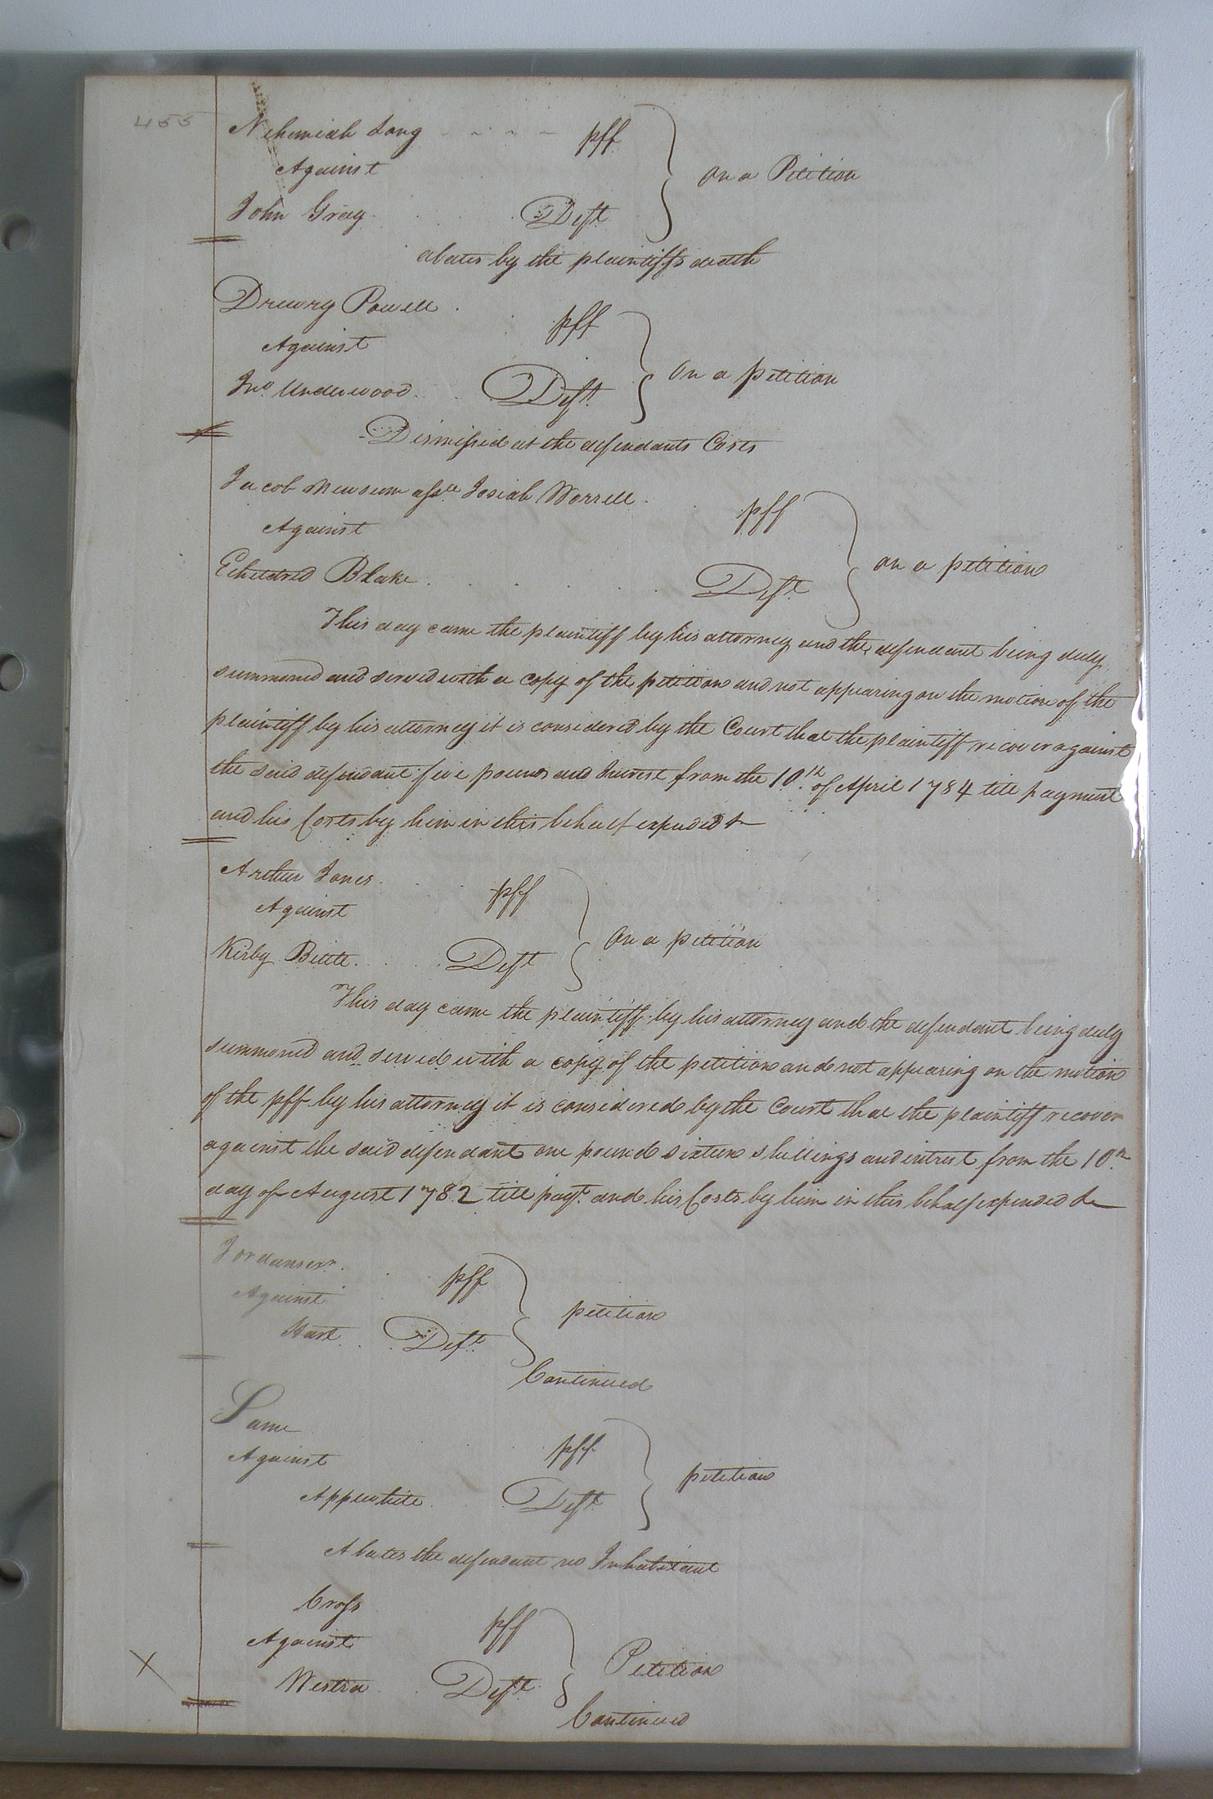 455
Nehemiah Long pff
Against
On a Petition
John Gray Deft
abates by the plaintiffs death
Drewry Powell pff
Against
On a petition
Jno. Underwood Deft.
Dismissed at the defendants Costs
Jacob Newsum assee Josiah Worrell pff
Against
on a petition
Etheldred Blake Deft
This day came the plaintiff by his attorney and the defendant being duly
summoned and served with a copy of the petition and not appearing on the motion of the
plaintiff by his attorney it is considered by the Court that the plaintiff recover against
the said defendant five pounds and Interest from the 10th. of April 1784 till payment
and his Costs by him in this behalf expended &
Arthur Jones pff
Against
On a petition
Kirby Bittle Deft
This day came the plaintiff by his attorney and the defendant being duly
summoned and served with a copy of the petition and not appearing on the motion
of the pff by his attorney it is considered by the Court that the plaintiff recover
against the said defendant one pound sixteen shillings and intrest from the 10th
day of August 1782 till payt. and his Costs by him in this behalf expended &
pff
Against
petition
Hart Deft.
Continued
Same
pff
Against
petition
Applewhite Deft
Abates the defendant no Inhabitant
Cross
pff
Against
Petition
X
Westra Deft
Continued